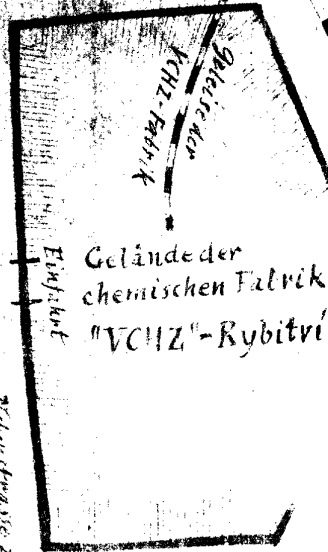 Geleise der
VCHZ-Fabrik
Einfahrt
Gelände der
chemischen Fabrik
"VCHZ"-Rybitví